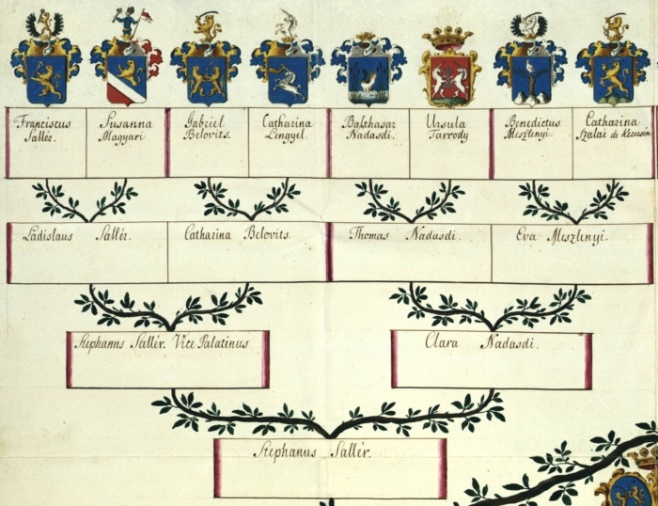 Franciscus
Sallér.
Susanna
Magyari
Gabriel
Belovits.
Catharina
Lengyel
Balthasar
Nadasdi.
Ursula
Tarrody
Benedictus
Meszlenyi.
Catharina
Szalai de Kerecsin
Ladislaus Sallér.
Catharina Belovits.
Thomas Nadasdi.
Eva Meszlenyi.
Stephanus Sallér. Vice Palatinus
Clara Nadasdi.
Stephanus Sallér.